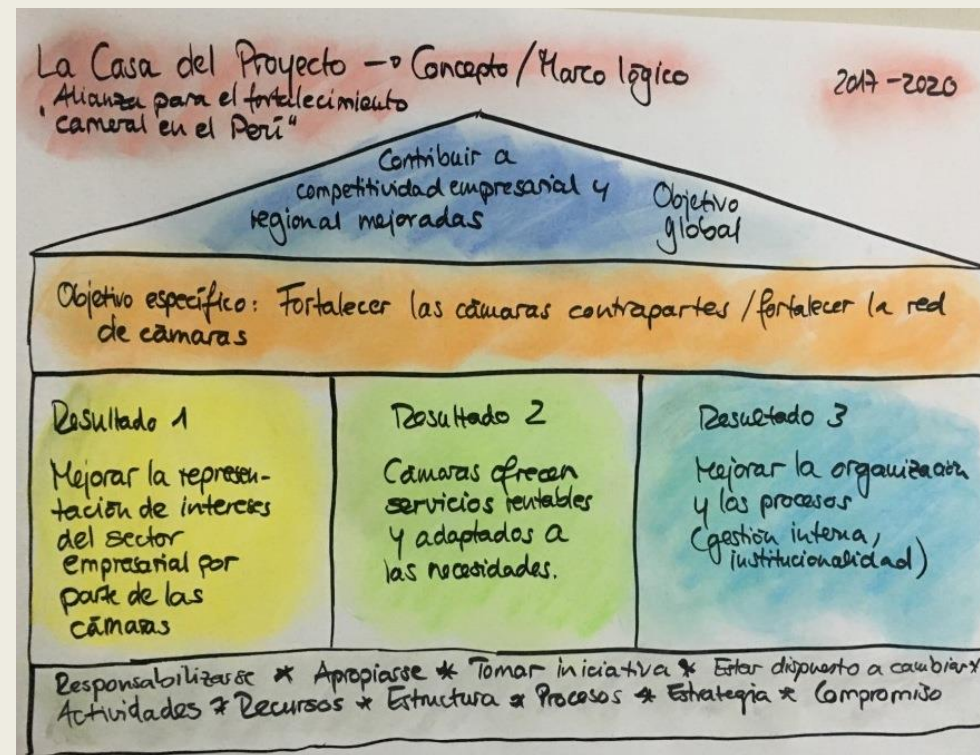 La Casa del Proyecto → Concepto / Marco lógico
2017-2020
"Alianza para el fortalecimiento
cameral en el Perú"
Contribuir a
competitividad empresarial y
regional mejoradas
Objetivo
global
Objetivo específico: Fortalecer las cámaras contrapartes / fortalecer la red
de cámaras
Resultado 1
Mejorar la represen-
tación de intereses
del sector
empresarial por
parte de las
cámaras
Resultado 2
Cámaras ofrecen
servicios rentables
y adaptados a
las necesidades.
Resultado 3
Mejorar la organización
y los procesos
(gestión interna,
institucionalidad)
Responsabilizarse * Apropiarse * Tomar iniciativa * Estar dispuesto a cambiar *
Actividades * Recursos * Estructura * Procesos * Estrategia * Compromiso